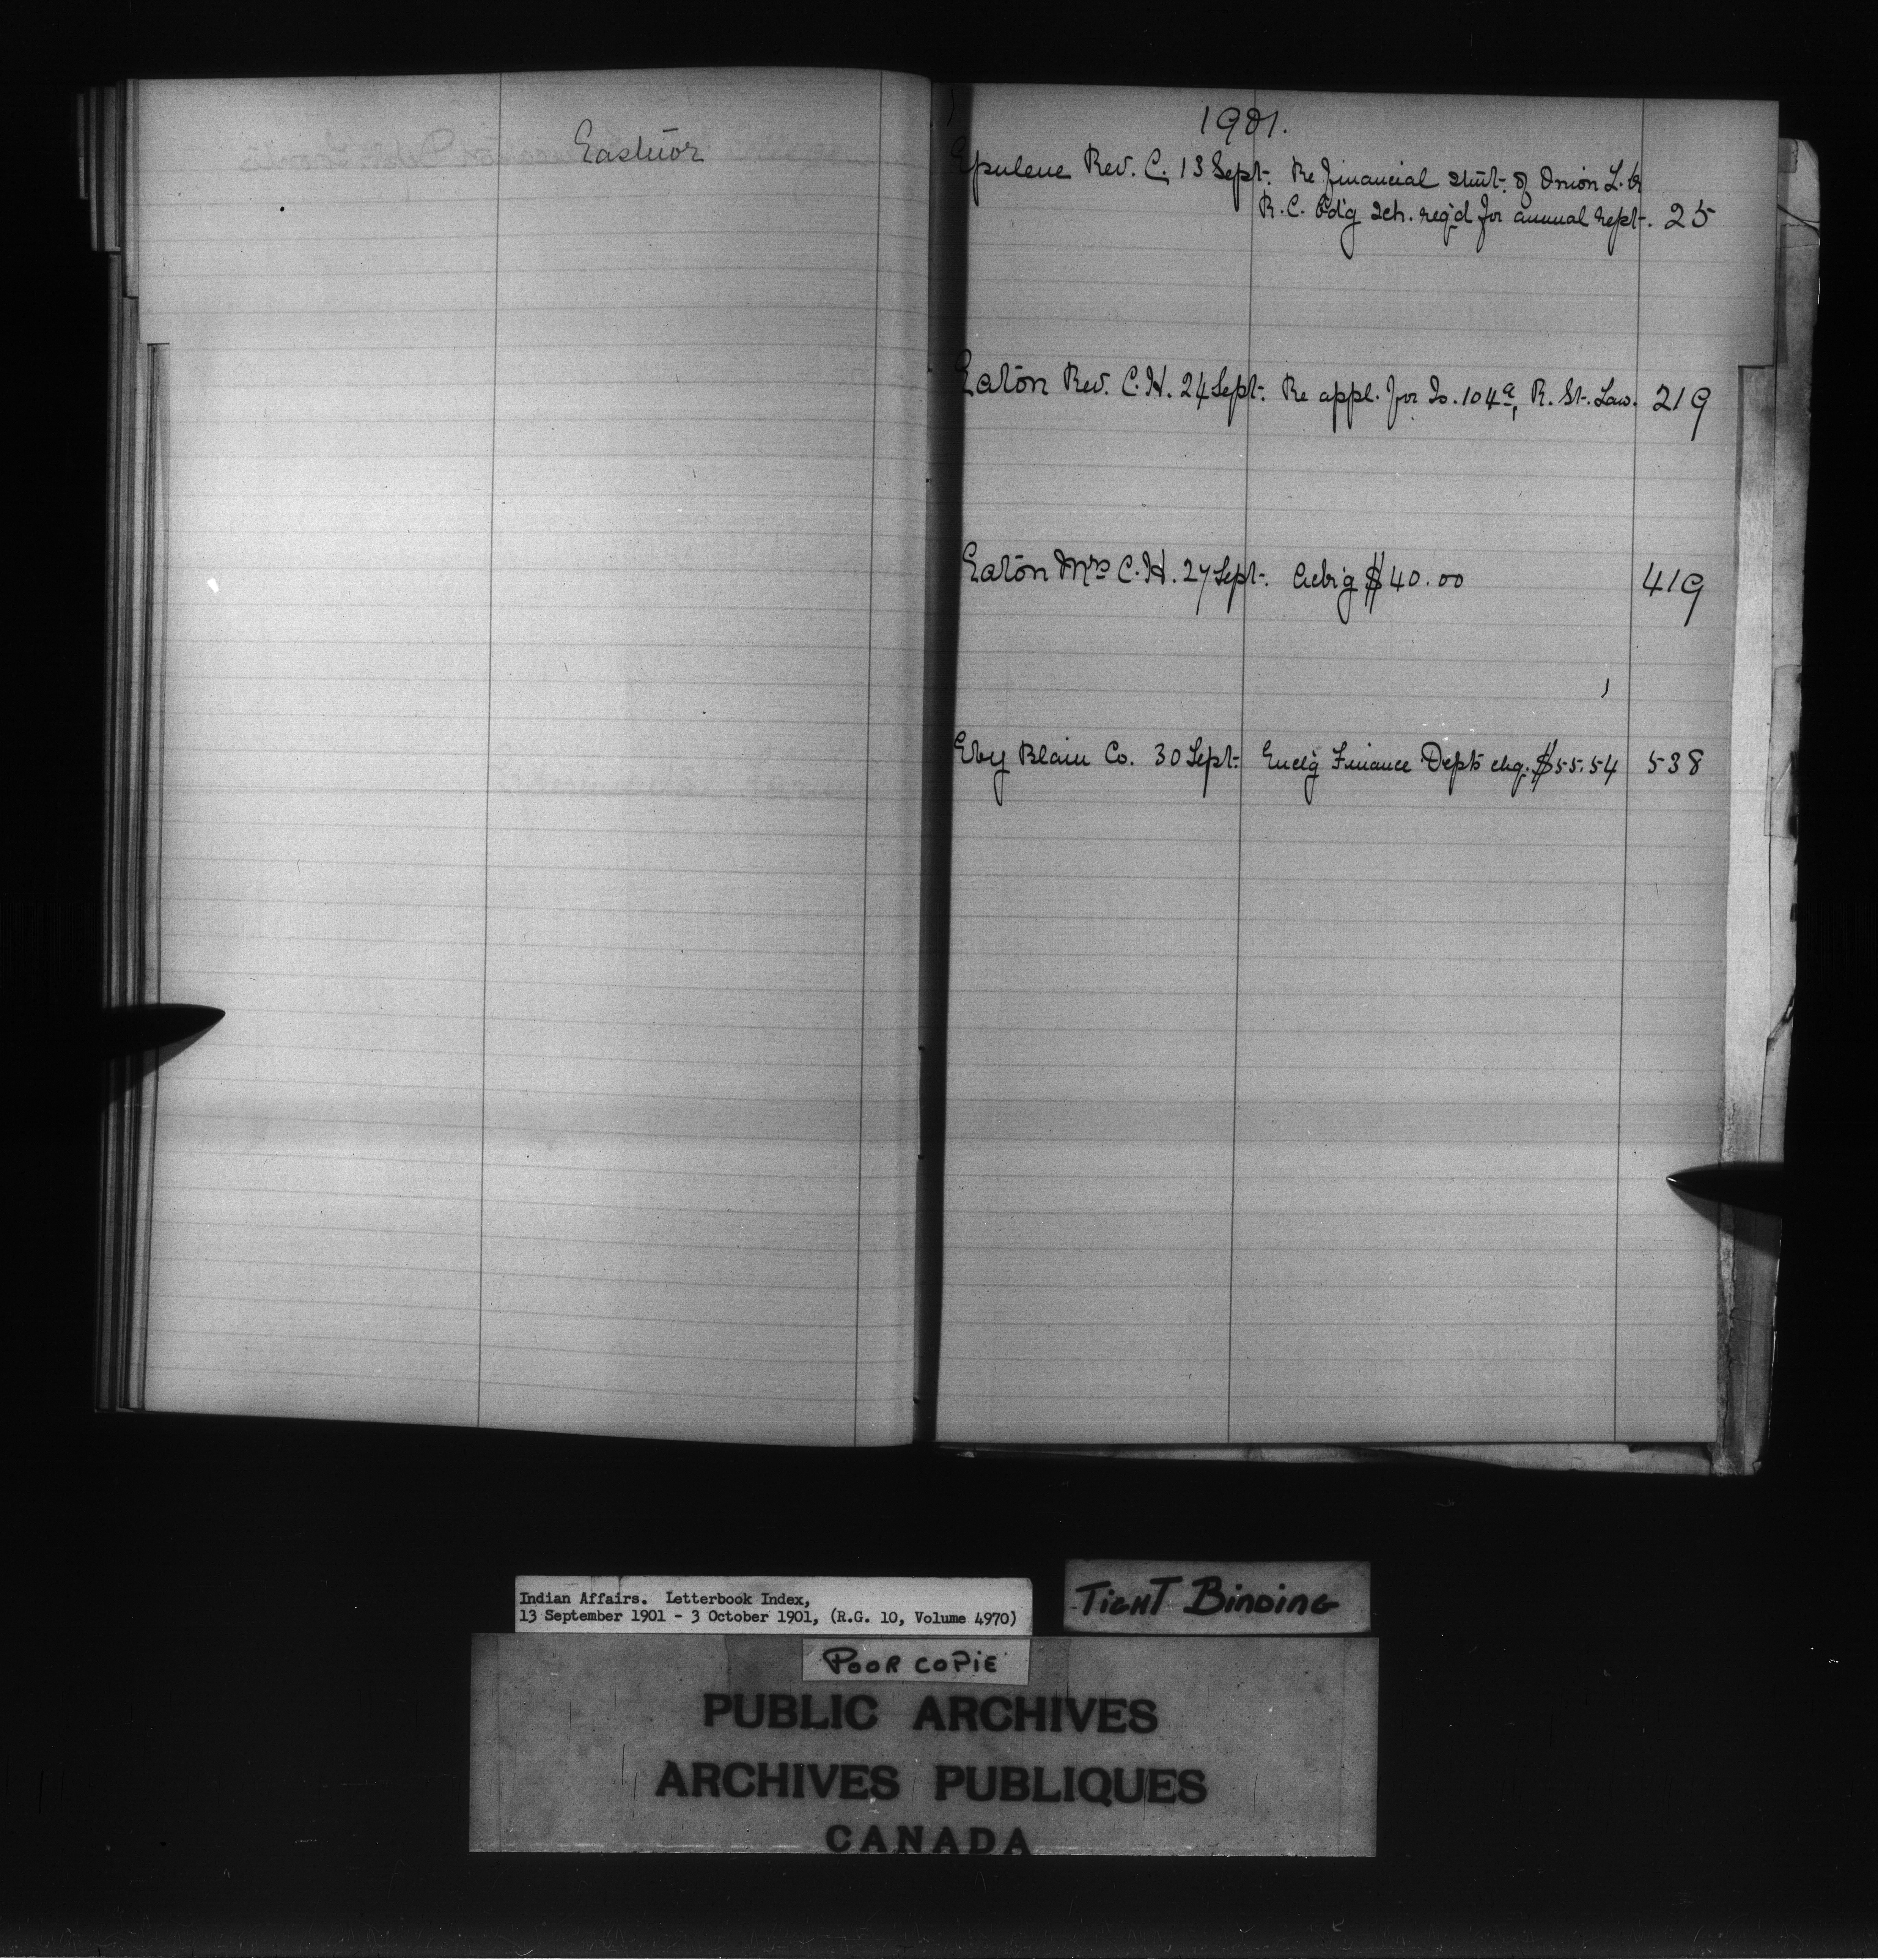 Eastwor
1901.
Epulene Rev. C. 13 Sept. Re Financial Stmt. of Onion L. &
R. C. Bd'g Sch. req'd for annual rept. 25
Eaton Rev. C. H. 24 Sept. Re appl. for Is. 104a, R. St. Law. 219
Eaton Mrs C. H. 27 Sept. $40.00 419
Eby Blain Co. 30 Sept. Encl'g Finance Dept's chq. $55.54 538
Indian Affairs. Letterbook Index,
13 September 1901 - 3 October 1901, (R.G. 10, Volume 4970)
TIGHT BINDING
POOR COPIE
PUBLIC ARCHIVES
ARCHIVES PUBLIQUES
CANADA